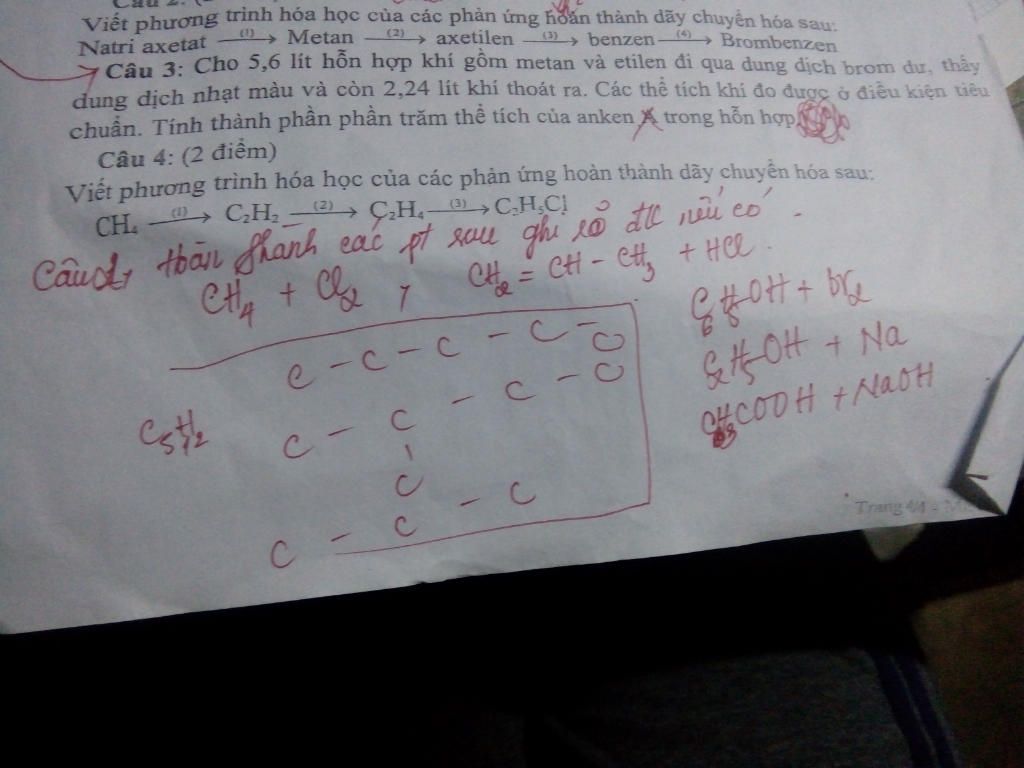 Câu 2: (
Viết phương trình hóa học của các phản ứng hoàn thành dãy chuyển hóa sau:
Natri axetat (1)→ Metan (2)→ axetilen (3)→ benzen (4)→ Brombenzen
Câu 3: Cho 5,6 lít hỗn hợp khí gồm metan và etilen đi qua dung dịch brom dư, thấy
dung dịch nhạt màu và còn 2,24 lít khí thoát ra. Các thể tích khí đo được ở điều kiện tiêu
chuẩn. Tính thành phần phần trăm thể tích của anken trong hỗn hợp
Câu 4: (2 điểm)
Viết phương trình hóa học của các phản ứng hoàn thành dãy chuyển hóa sau:
CH₄ (1)→ C₂H₂ (2)→ C₂H₄ (3)→ C₂H₅Cl
Câu 1, Hoàn thành các pt sau ghi rõ đk nếu có.
CH₄ + Cl₂ , CH₂ = CH - CH₃ + HCl.
C₆H₅OH + br₂
C - C - C - C - C
C₂H₅OH + Na
C - C - C - C
CH₃COOH + NaOH
C₅H₁₂
C
C - C - C
Trang 4/4 - M